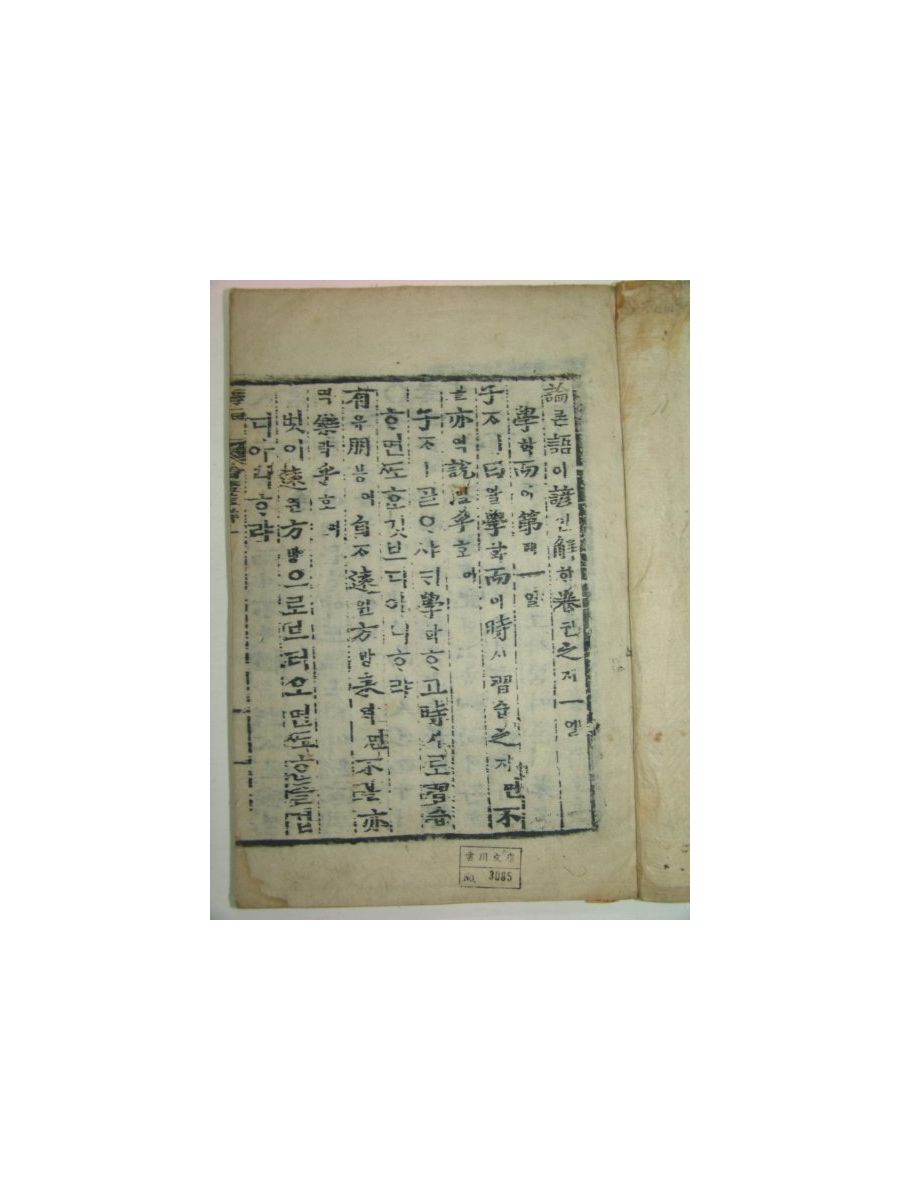 論론語어諺언解해卷권之지一일
學학而이第뎨一일
子ᄌᆞㅣ曰왈學학而이時시習습之지면不
블亦역說열乎호아
子ᄌᆞㅣ ᄀᆞᆯᄋᆞ샤ᄃᆡ 學학ᄒᆞ고 時시로 習습
ᄒᆞ면 ᄯᅩᄒᆞᆫ 깃브디 아니ᄒᆞ랴
有유朋븡이 自ᄌᆞ遠원方방來ᄅᆡ면不블亦
역樂락乎호아
벗이 遠원方방으로브터 오면 ᄯᅩᄒᆞᆫ 즐겁
디 아니ᄒᆞ랴
NO. 3085